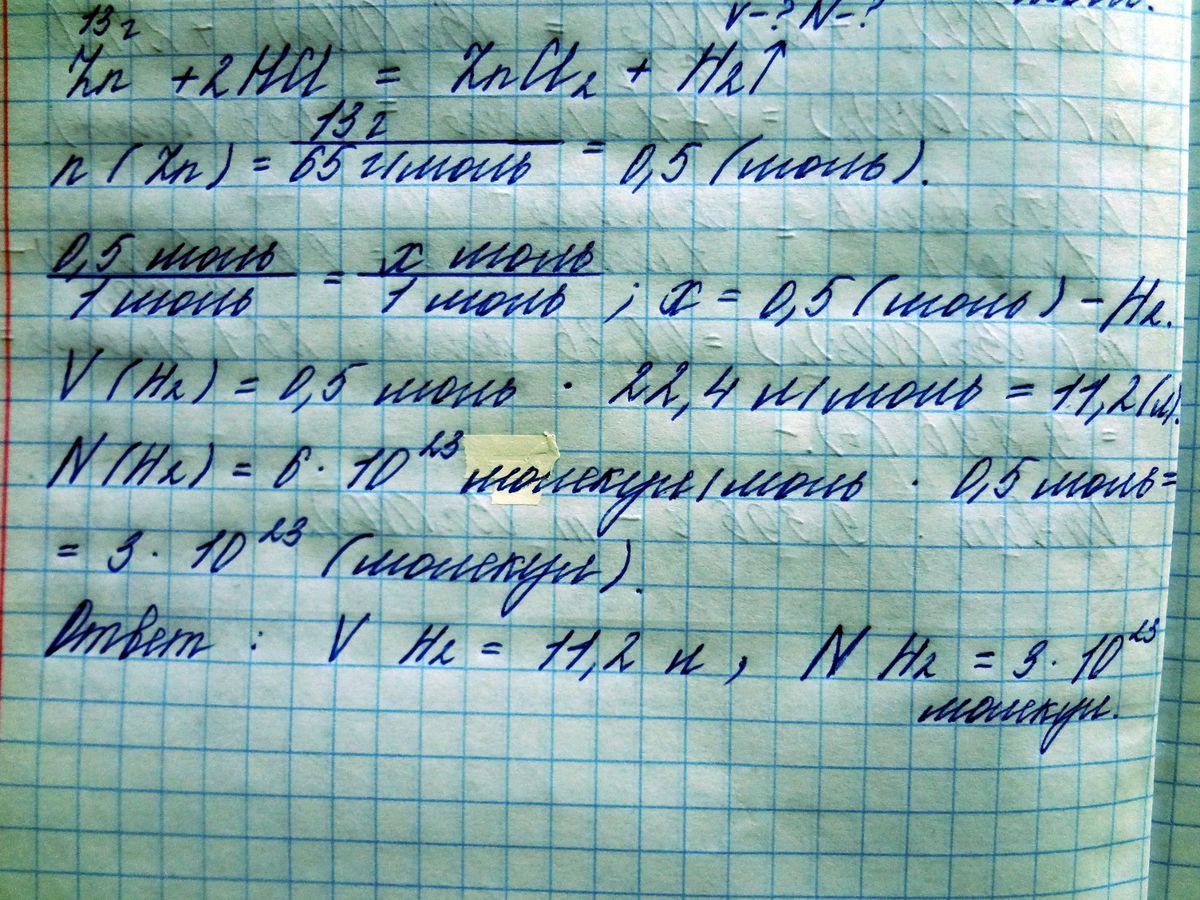 13 г
V-? N-?
Zn + 2HCl = ZnCl₂ + H₂↑
n (Zn) = 13 г / 65 г/моль = 0,5 (моль).
0,5 моль / 1 моль = x моль / 1 моль ; x = 0,5 (моль) - H₂.
V (H₂) = 0,5 моль · 22,4 л/моль = 11,2 (л).
N (H₂) = 6 · 10²³ молекул/моль · 0,5 моль =
= 3 · 10²³ (молекул).
Ответ : V H₂ = 11,2 л , N H₂ = 3 · 10²³
молекул.